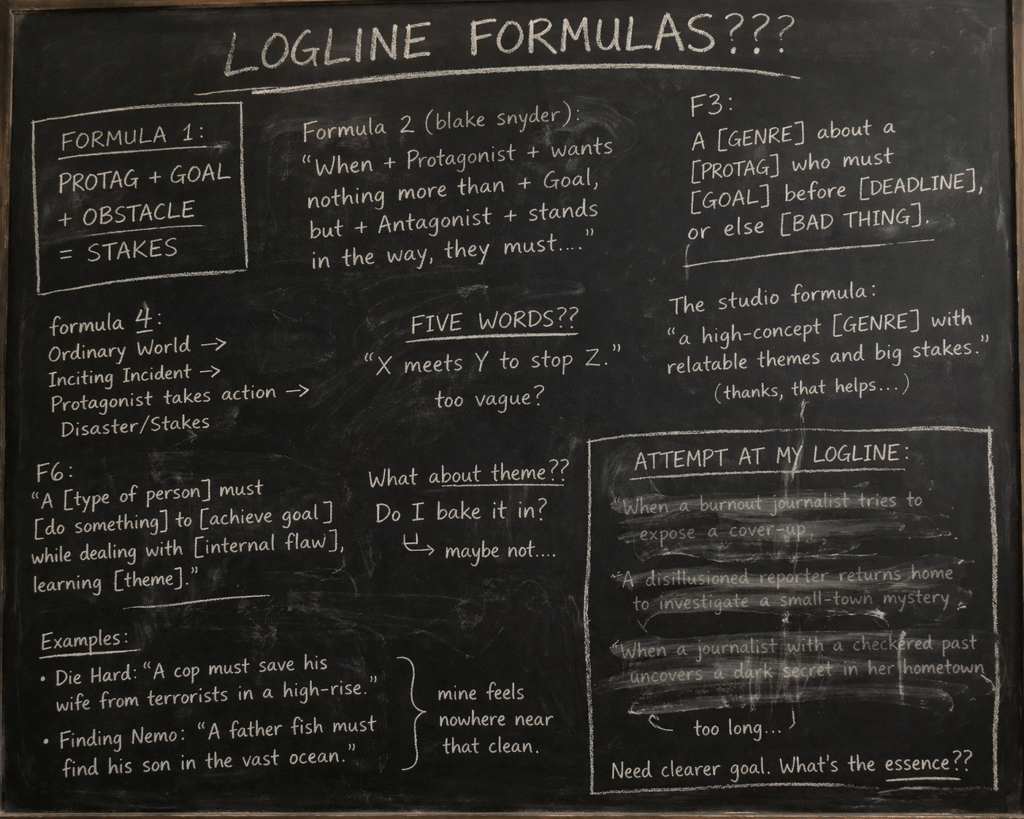 LOGLINE FORMULAS???
FORMULA 1:
PROTAG + GOAL
+ OBSTACLE
= STAKES
Formula 2 (blake snyder):
“When + Protagonist + wants
nothing more than + Goal,
but + Antagonist + stands
in the way, they must....”
F3:
A [GENRE] about a
[PROTAG] who must
[GOAL] before [DEADLINE],
or else [BAD THING].
formula 4:
Ordinary World →
Inciting Incident →
Protagonist takes action →
Disaster/Stakes
FIVE WORDS??
“X meets Y to stop Z.”
too vague?
The studio formula:
“a high-concept [GENRE] with
relatable themes and big stakes.”
(thanks, that helps...)
F6:
“A [type of person] must
[do something] to [achieve goal]
while dealing with [internal flaw],
learning [theme].”
What about theme??
Do I bake it in?
↳ maybe not....
ATTEMPT AT MY LOGLINE:
“When a burnout journalist tries to
expose a cover-up,
“A disillusioned reporter returns home
to investigate a small-town mystery
“When a journalist with a checkered past
uncovers a dark secret in her hometown
too long...
Need clearer goal. What's the essence??
Examples:
• Die Hard: “A cop must save his
wife from terrorists in a high-rise.”
• Finding Nemo: “A father fish must
find his son in the vast ocean.”
mine feels
nowhere near
that clean.